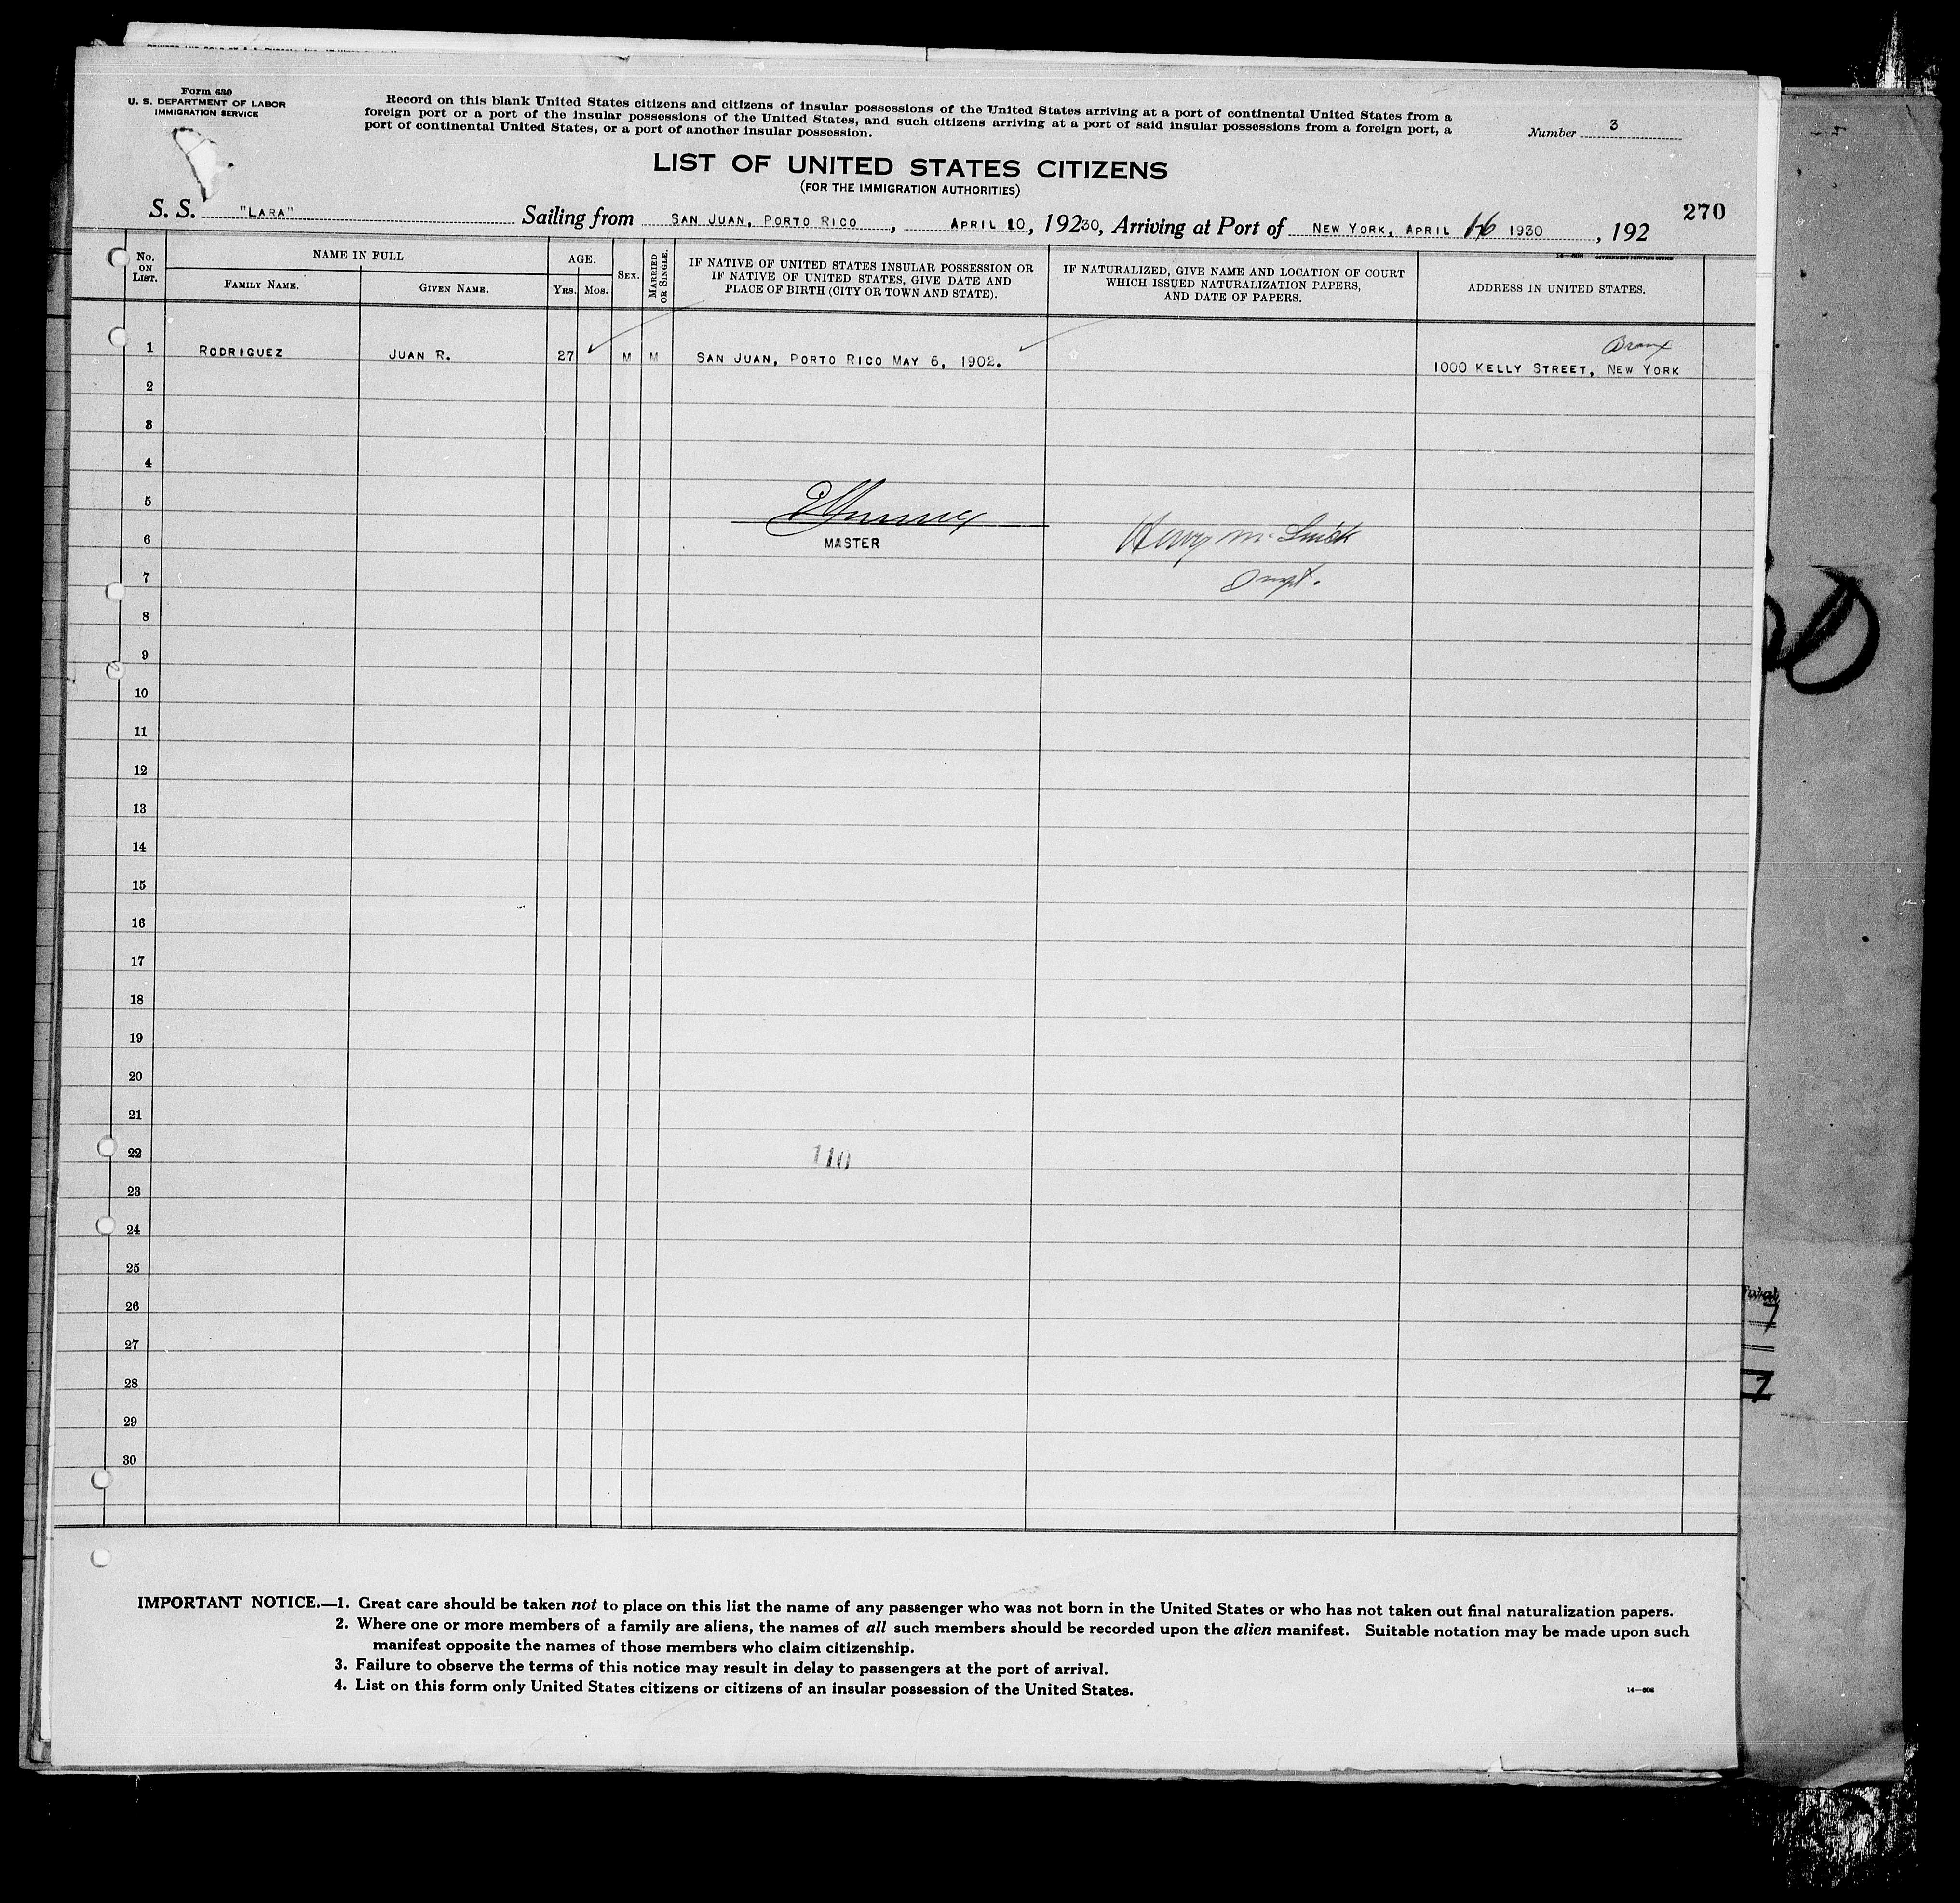 Form 630
U. S. DEPARTMENT OF LABOR
IMMIGRATION SERVICE
Record on this blank United States citizens and citizens of insular possessions of the United States arriving at a port of continental United States from a
foreign port or a port of the insular possessions of the United States, and such citizens arriving at a port of said insular possessions from a foreign port, a
port of continental United States, or a port of another insular possession.
Number 3
LIST OF UNITED STATES CITIZENS
(FOR THE IMMIGRATION AUTHORITIES)
270
S. S. "LARA" Sailing from SAN JUAN, PORTO RICO, APRIL 10, 19230, Arriving at Port of NEW YORK, APRIL 1930, 192
No. ON LIST.
NAME IN FULL
FAMILY NAME.
GIVEN NAME.
AGE.
YRS.
MOS.
SEX.
MARRIED OR SINGLE.
IF NATIVE OF UNITED STATES INSULAR POSSESSION OR
IF NATIVE OF UNITED STATES, GIVE DATE AND
PLACE OF BIRTH (CITY OR TOWN AND STATE).
IF NATURALIZED, GIVE NAME AND LOCATION OF COURT
WHICH ISSUED NATURALIZATION PAPERS,
AND DATE OF PAPERS.
ADDRESS IN UNITED STATES.
Bronx
1 RODRIGUEZ JUAN R. 27 M M SAN JUAN, PORTO RICO MAY 6, 1902. 1000 KELLY STREET, NEW YORK
2
3
4
5
6 MASTER Henry
7
8
9
10
11
12
13
14
15
16
17
18
19
20
21
22 110
23
24
25
26
27
28
29
30
IMPORTANT NOTICE.—1. Great care should be taken not to place on this list the name of any passenger who was not born in the United States or who has not taken out final naturalization papers.
2. Where one or more members of a family are aliens, the names of all such members should be recorded upon the alien manifest. Suitable notation may be made upon such
manifest opposite the names of those members who claim citizenship.
3. Failure to observe the terms of this notice may result in delay to passengers at the port of arrival.
4. List on this form only United States citizens or citizens of an insular possession of the United States.
14—606